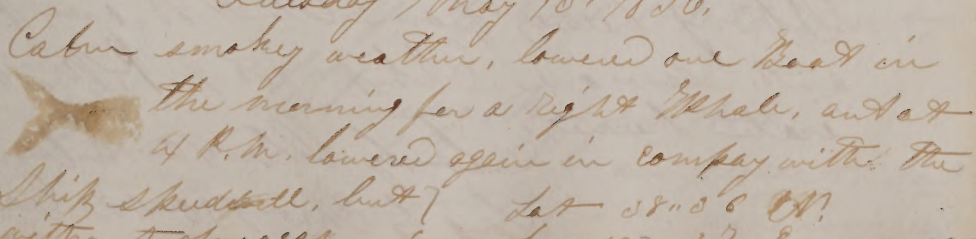 Tuesday May 13th 1856.
Calm smokey weather, lowered one Boat in
the morning for a right Whale, and at
4 P.M. lowered again in compay with the
Ship but Lat 38 " 36 N.